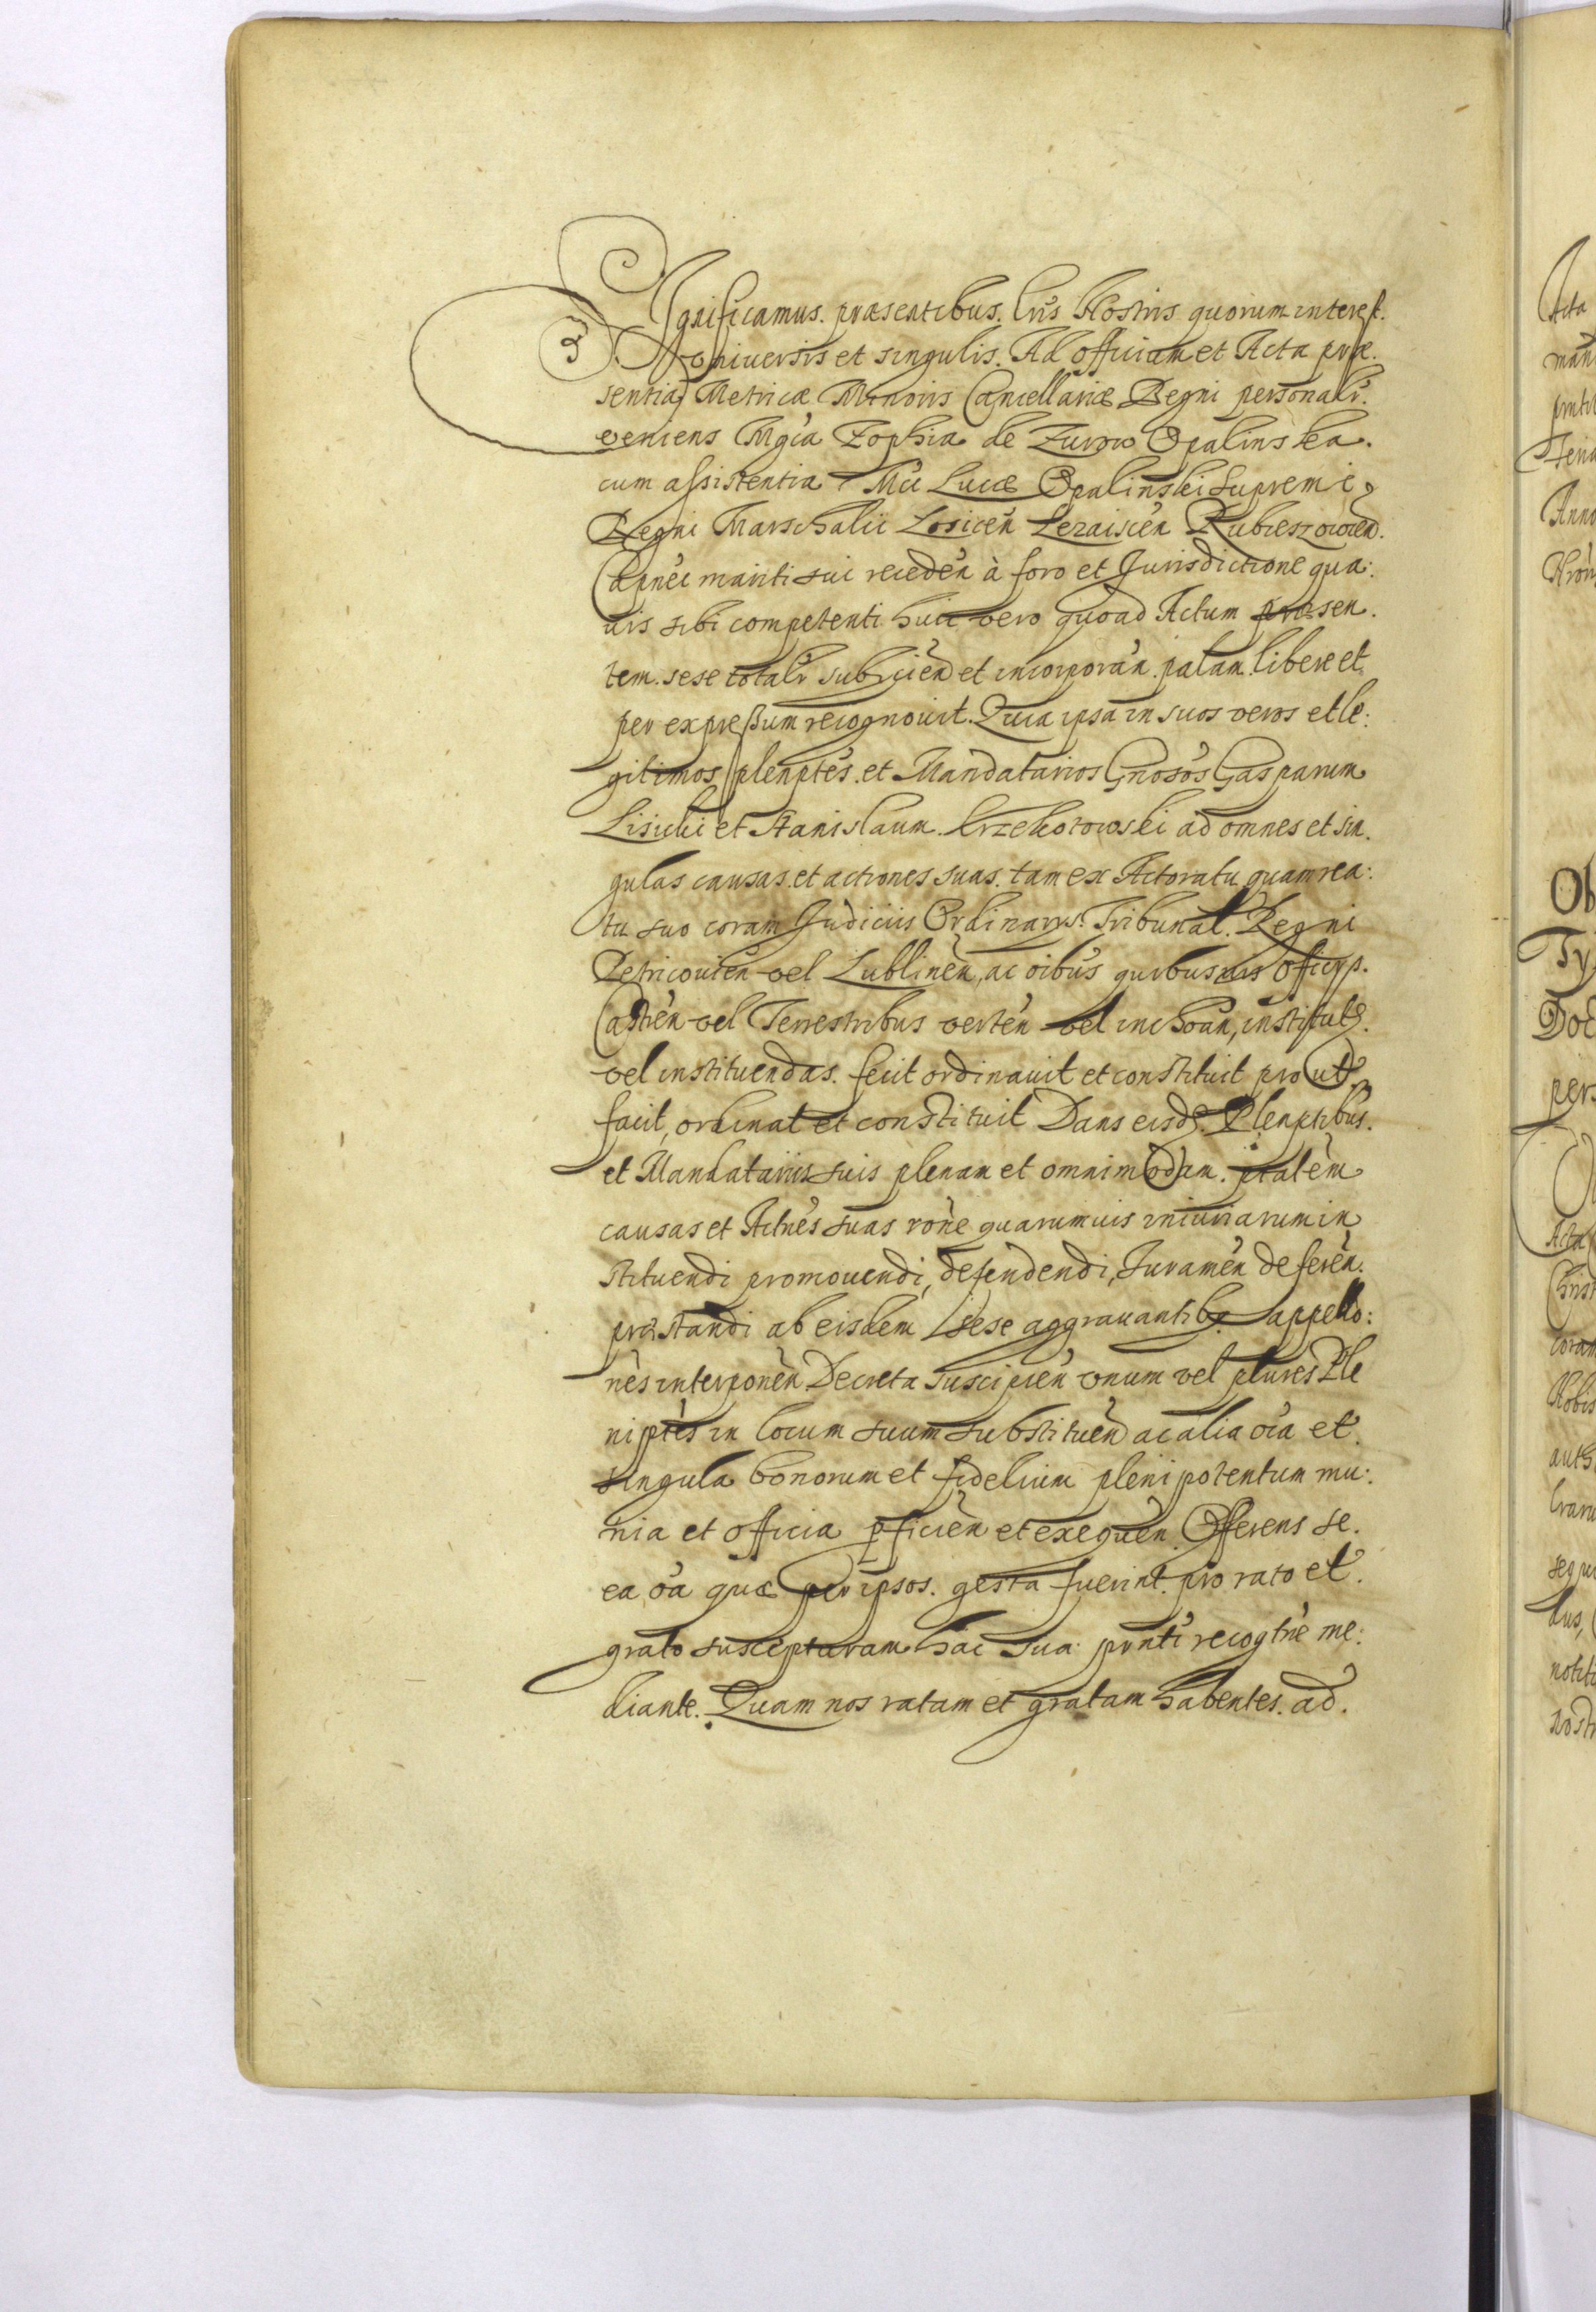 Significamus. præsentibus. lris Nostris quorum interest.
vniuersis et singulis. Ad officium et Acta præ.
sentia Metricæ Minoris Cancellariæ Regni personalr.
veniens Mgca Zophia de Zurow Opalinska.
cum assistentia Mci Lucæ Opalinski Supremi
Regni Marschalii Losicen Lezaiscen Rubieszowien.
Capnei mariti sui receden à foro et Jurisdictione qua:
uis sibi competenti huic vero quoad Actum præsen.
tem. sese totalr subijcien et incorporan. palam. libere et
per expreßum recognouit. Quia ipsa in suos veros et le:
gitimos plenptes. et Mandatarios Gnosos Gasparum
Lisicki et Stanislaum. Krzekotowski ad omnes et sin.
gulas causas. et actiones suas. tam ex Actoratu quam rea:
tu suo coram Judiciis Ordinarys. Tribunal. Regni
Petricouien vel Lublinen, ac oibus quibusuis officys.
Castren vel Terrestribus verten vel inchoan, institutas.
vel instituendas. fecit ordinauit et constituit prout
facit, ordinat et constituit Dans eisd. Plenptibus.
et Mandatariis suis plenam et omnimodam. ptatem
causas et Actnes suas rone quarumuis iniuriarum in
stituendi promouendi, defendendi, Juramen deferen.
præstandi ab eisdem sese aggrauantibq appello:
nes interponen Decreta suscipien vnum vel plures Ple
niptes in locum suum substituen ac alia oia et
singula bonorum et fidelium plenipotentum mu:
nia et officia pficien et exequen. Offerens se.
ea oia quæ per ipsos. gesta fuerint. pro rato et.
grato suscepturam hac sua prnti recogtne me:
diante. Quam nos ratam et gratam habentes. ad.